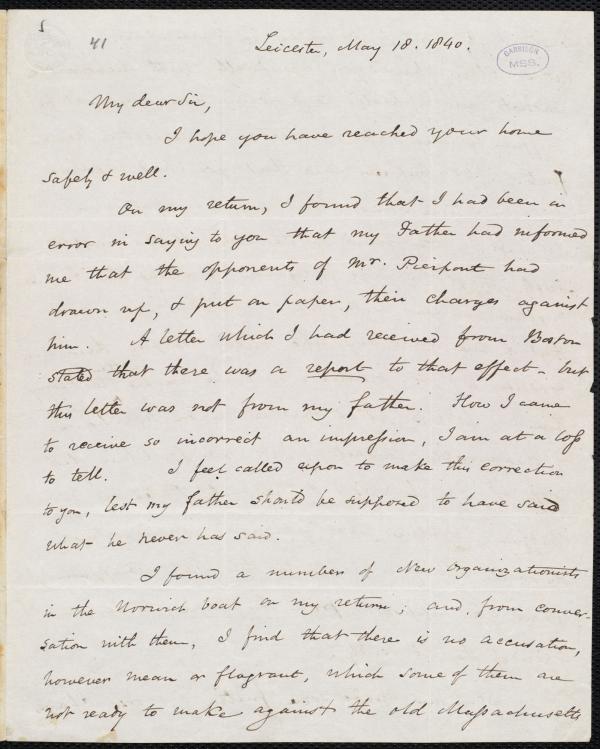 5
41
Leicester, May 18. 1840.
GARRISON
MSS.
My dear Sir,
I hope you have reached your home
safely & well.
On my return, I found that I had been in
error in saying to you that my Father had informed
me that the opponents of Mr. Pierpont had
drawn up, & put on paper, their charges against
him. A letter which I had received from Boston
stated that there was a report to that effect - but
this letter was not from my father. How I came
to receive so incorrect an impression, I am at a loss
to tell. I feel called upon to make this correction
to you, lest my father should be supposed to have said
what he never has said.
I found a number of New organizationists
in the Norwich boat on my return; and, from conver-
sation with them, I find that there is no accusation,
however mean or flagrant, which some of them are
not ready to make against the old Massachusetts